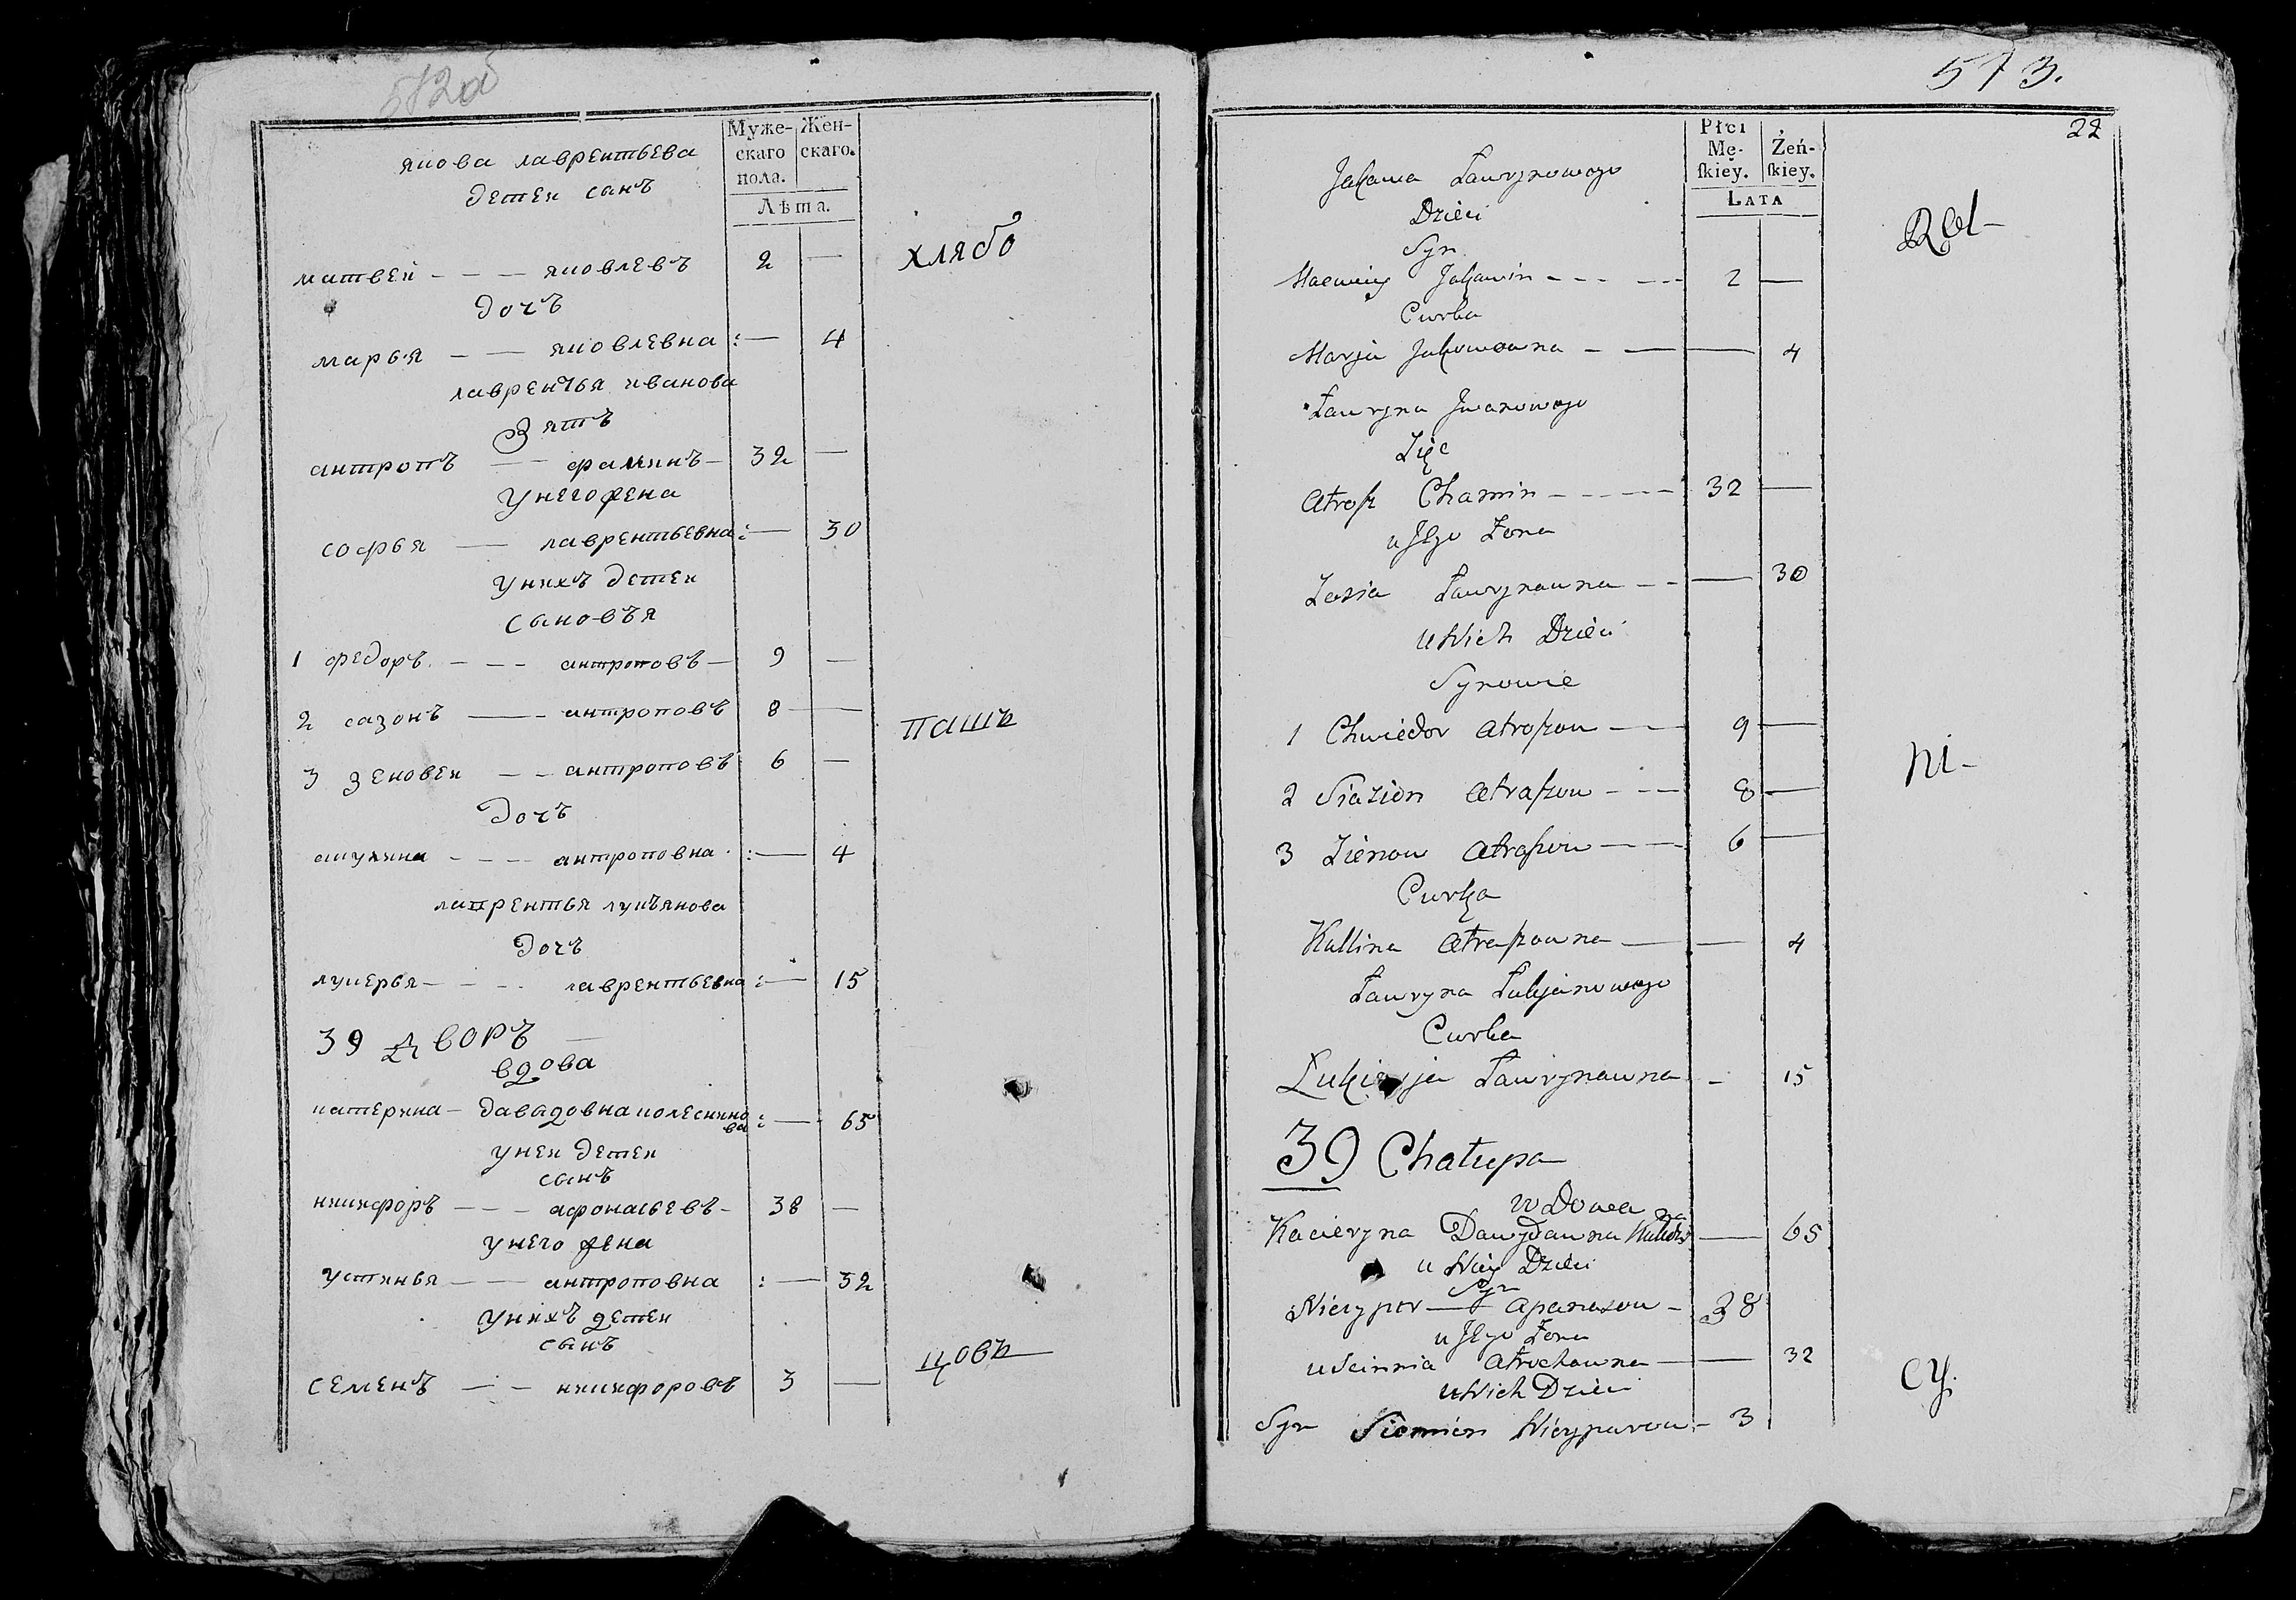 Муже-
скаго
пола.
Жен-
скаго.
Лѣта.
якова лаврентьева
детей санъ
матвей - - - яковлевъ 2 —
дочъ
марья - — яковлевна :— 4
лаврентья иванова
зятъ
антропъ — фаминъ — 32 —
унего жена
софья — лаврентьевна :— 30
унихъ детей
сыновъя
1 федоръ - - - антроповъ — 9 —
2 сазонъ — антроповъ 8 —
3 зеновей — антроповъ 6 —
дочъ
акулина - - - антроповна :— 4
лаврентья лукъянова
дочъ
лукерья - - - лаврентьевна :— 15
39 дворъ
вдова
катерина — давыдовна колесникова :— 65
уней детей
сынъ
никифоръ - - - афонасьевъ - 38 —
унего жена
устинья — антроповна :— 32
унихъ детей
сынъ
семенъ — никифоровъ 3 —
хлябо
пашъ
цовъ
573.
22
Płci
Mę-
skiey.
Żeń-
skiey.
LATA
Jakawa Ławrynowogo
Dzieci
Syn
Maciwiey Jakawin - - - 2 —
Curka
Marja Jakowowna — — 4
Ławryna Jwanowogo
Zięc
Atrop Chamin - - - 32 —
u Jego Zona
Zosia Ławrynawna - - — 30
u Nich Dzieci
Synowie
1 Chwiedor Atropow — 9 —
2 Siazion Atrapow - - - 8 —
3 Zienow Atrapow — 6 —
Curka
Kullina Atrapowna — — 4
Ławryna Łukjanowogo
Curka
Łukierja Ławrynawna - 15
39 Chałupa
wdowa
Kacieryna Dawydawna — 65
u Niey Dzieci
Syn
Nicypor — Apanasow - 38
u Jego Zona
Uscinnia Atrochowna — — 32
u Nich Dzieci
Syn Siemien Nicyparow - 3
Rol-
ni-
cy.